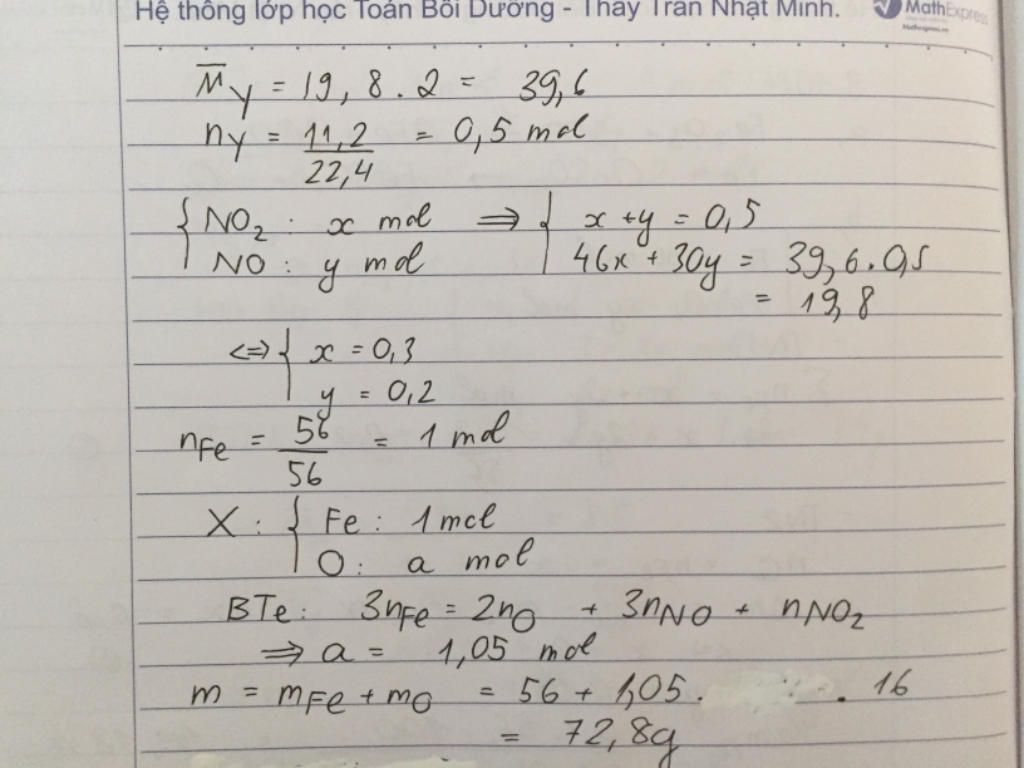 Hệ thống lớp học Toán Bồi Dưỡng - Thầy Trần Nhật Minh.
MathExpress
Mathexpress.vn
M̅Y = 19,8 . 2 = 39,6
nY = 11,2/22,4 = 0,5 mol
{ NO2 : x mol ⟹ { x + y = 0,5
NO : y mol 46x + 30y = 39,6 . 0,5
= 19,8
<=> { x = 0,3
y = 0,2
nFe = 56/56 = 1 mol
X : { Fe : 1 mol
O : a mol
BTe : 3nFe = 2nO + 3nNO + nNO2
⟹ a = 1,05 mol
m = mFe + mO = 56 + 1,05 . . 16
= 72,8g